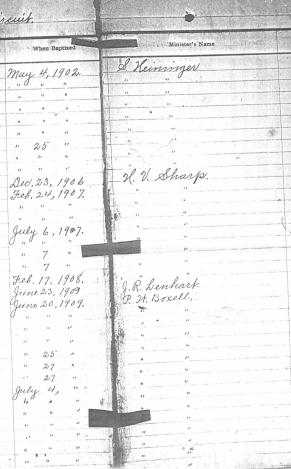 When Baptised Minister's Name
May 4, 1902 S. Heininger
" " " " "
" " " " "
" " " " "
" " " " "
" 25 " " "
" " " " "
" " " " "
Dec. 23, 1906 H. V. Sharp.
Feb. 24, 1907. " "
" " " " "
" " " " "
July 6, 1907. " "
" " " " "
" 7 " " "
" 7 " " "
Feb. 17, 1908. J. R. Lenhart
June 23, 1909
June 20, 1909. P. H. Boxell.
" " " " "
" " " " "
" " " " "
" 25 " "
" 27 " "
" 27 " "
July 4, " "
" " " "